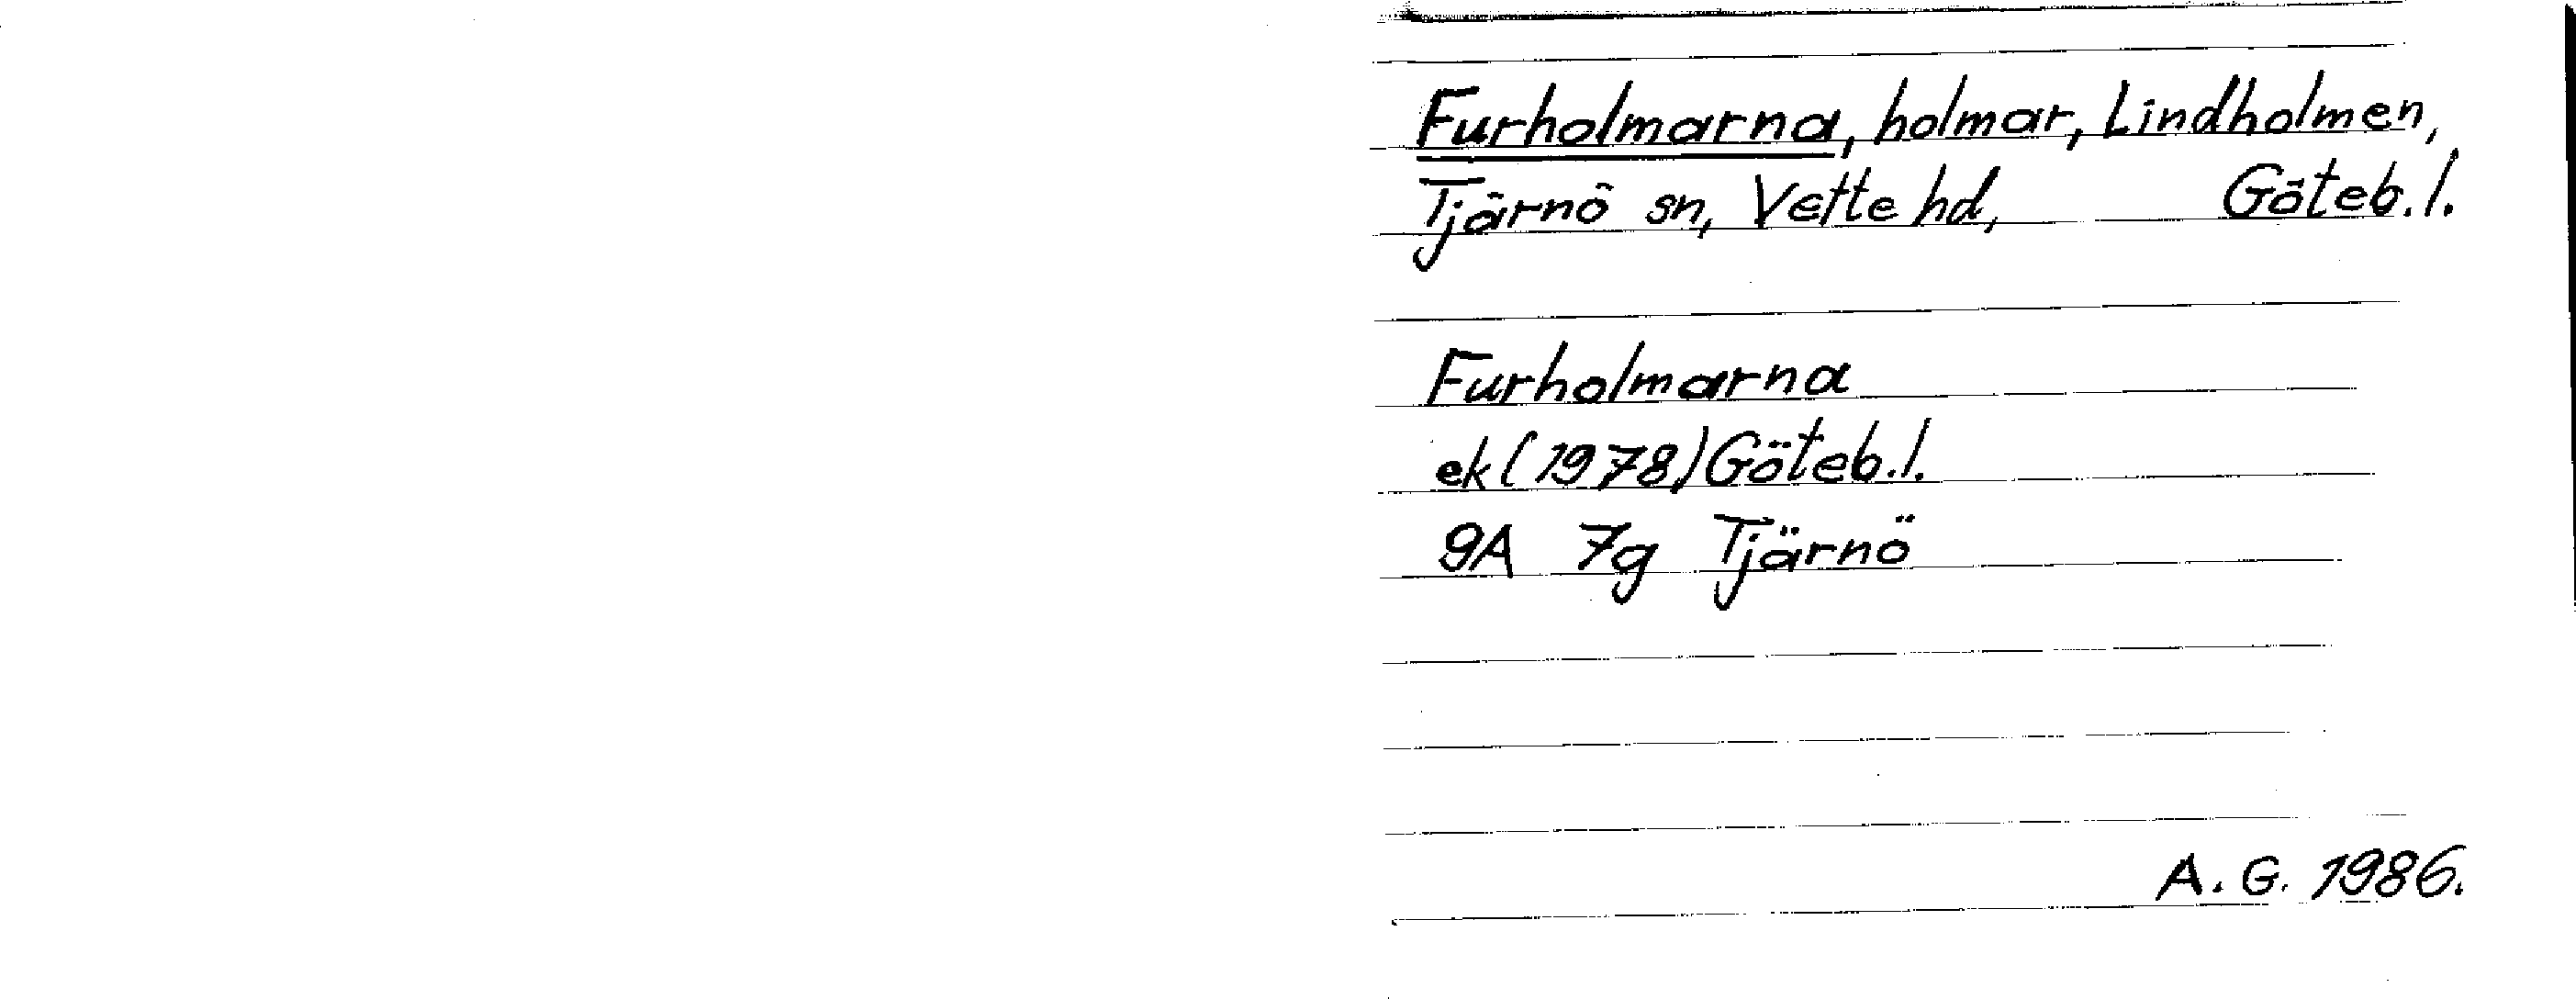 Furholmarna, holmar, Lindholmen,
Tjärnö sn, Vette hd, Göteb.l.
Furholmarna
ek (1978) Göteb.l.
9A 7g Tjärnö
A. G. 1986.